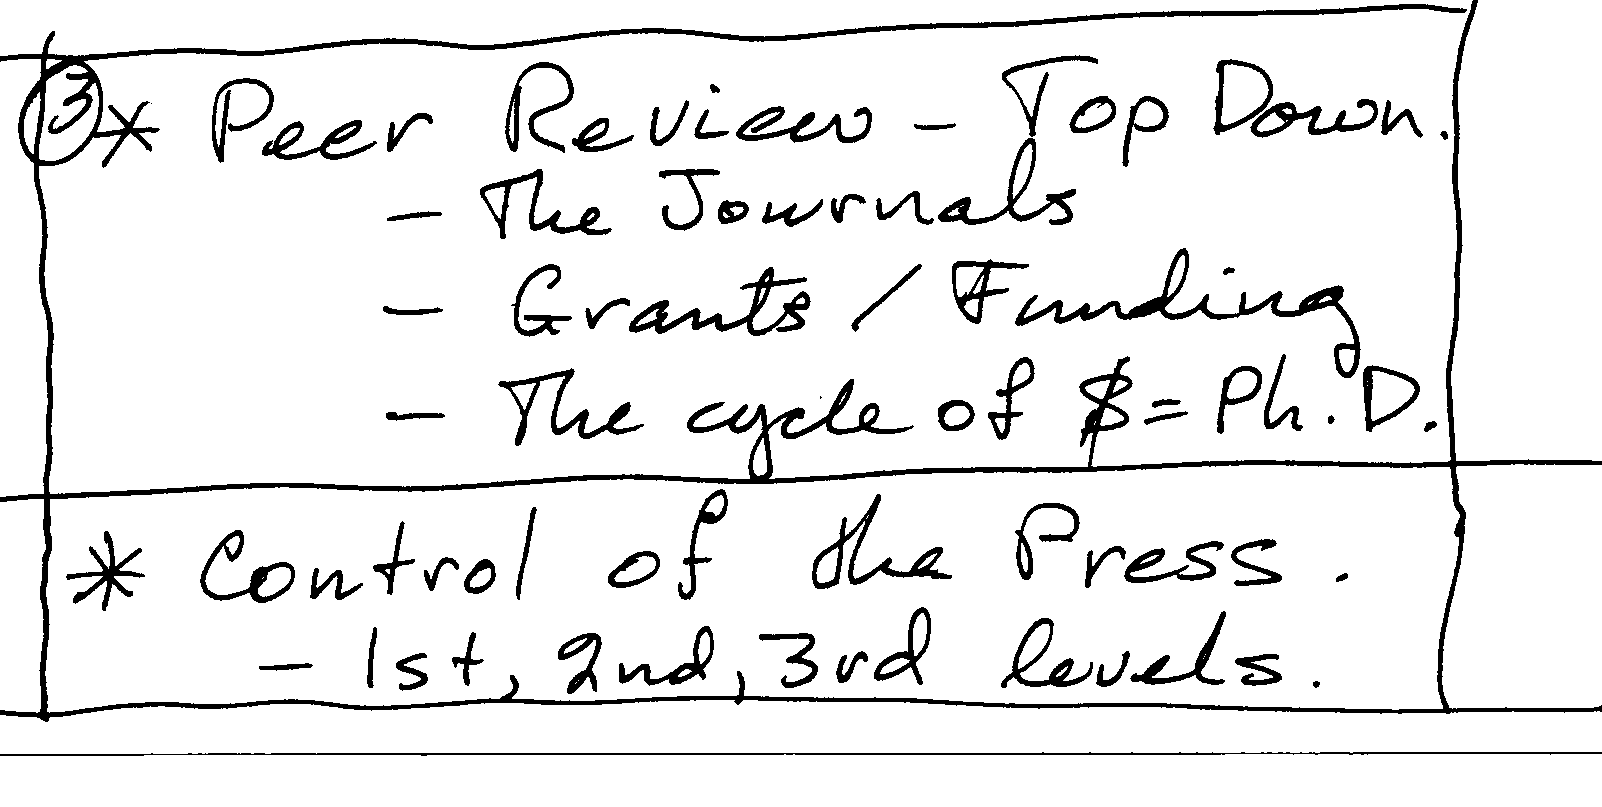 ③* Peer Review - Top Down.
- The Journals
- Grants / Funding
- The cycle of $ = Ph.D.
* Control of the Press.
- 1st, 2nd, 3rd levels.